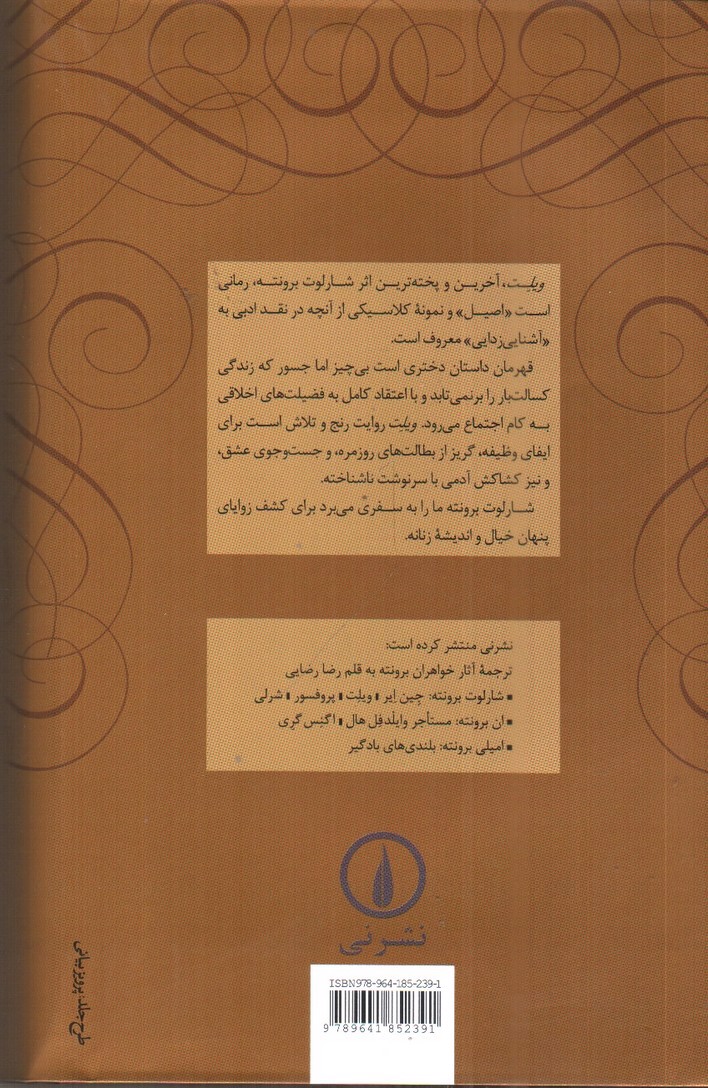 ویلت، آخرین و پخته‌ترین اثر شارلوت برونته، رمانی
است «اصیل» و نمونهٔ کلاسیکی از آنچه در نقد ادبی به
«آشنایی‌زدایی» معروف است.
قهرمان داستان دختری است بی‌چیز اما جسور که زندگی
کسالت‌بار را برنمی‌تابد و با اعتقاد کامل به فضیلت‌های اخلاقی
به کام اجتماع می‌رود. ویلت روایت رنج و تلاش است برای
ایفای وظیفه، گریز از بطالت‌های روزمره، و جست‌وجوی عشق،
و نیز کشاکش آدمی با سرنوشت ناشناخته.
شارلوت برونته ما را به سفری می‌برد برای کشف زوایای
پنهان خیال و اندیشهٔ زنانه.
نشرنی منتشر کرده است:
ترجمهٔ آثار خواهران برونته به قلم رضا رضایی
▪ شارلوت برونته: جِین اِیر ▮ ویلِت ▮ پروفسور ▮ شرلی
▪ اَن برونته: مستأجر وایلْدفِل هال ▮ اگنِس گرِی
▪ امیلی برونته: بلندی‌های بادگیر
نشر نی
ISBN978-964-185-239-1
9 789641 852391
طرح جلد: پرویز بیانی